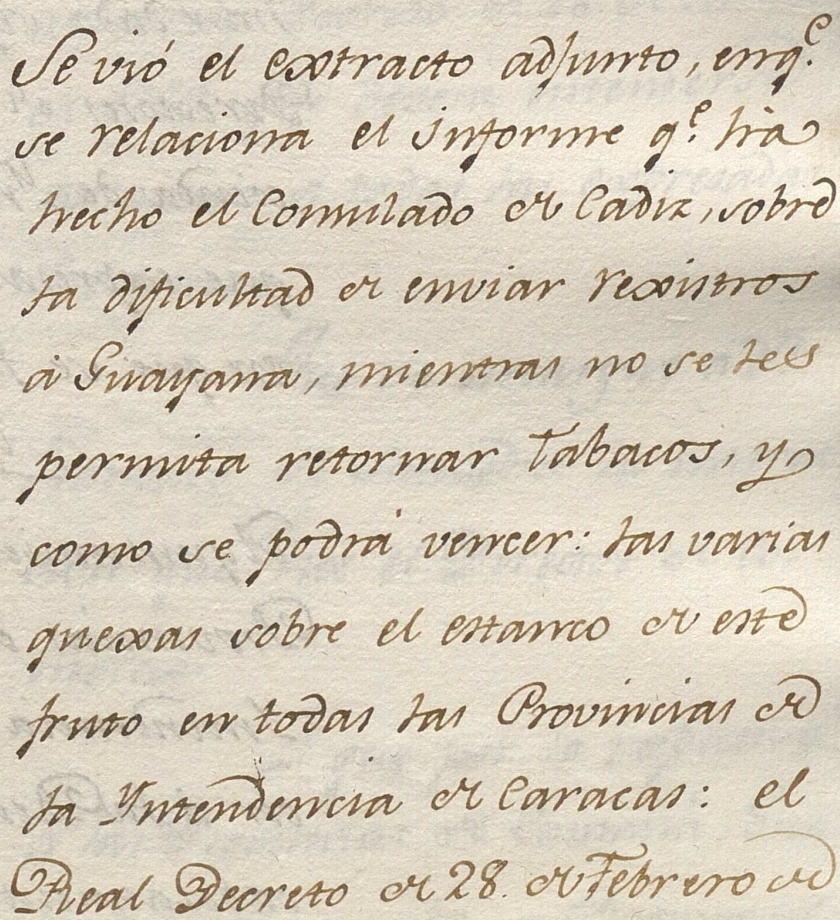 Se vió el extracto adjunto, en q.e
se relaciona el informe q.e hà
hecho el Consulado de Cadiz, sobre
la dificultad de enviar rexistros
à Guayana, mientras no se les
permita retornar Tabacos, y
como se podrà vencer: las varias
quexas sobre el estanco de este
fruto en todas las Provincias de
la Yntendencia de Caracas: el
Real Decreto de 28. de Febrero de